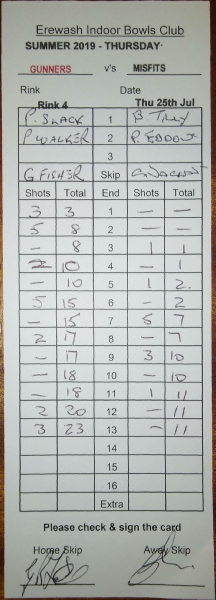 Erewash Indoor Bowls Club
SUMMER 2019 - THURSDAY
GUNNERS v's MISFITS
Rink Date
Rink 4 Thu 25th Jul
P. SLACK 1 B Tilly
P WALKER 2 P. EDDOW
3
G FISHER Skip
Shots Total End Shots Total
3 3 1 — —
5 8 2 — —
- 8 3 1 1
2 10 4 - 1
- 10 5 1 2.
5 15 6 - 2
- 15 7 5 7
2 17 8 - 7
- 17 9 3 10
- 18 10 - 10
- 18 11 1 11
2 20 12 - 11
3 23 13 - 11
14
15
16
Extra
Please check & sign the card
Home Skip Away Skip